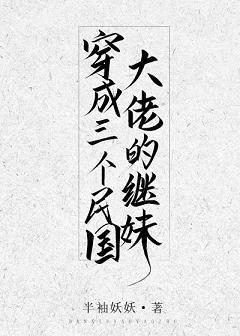 穿成三个民国
大佬的继妹
半袖妖妖·著